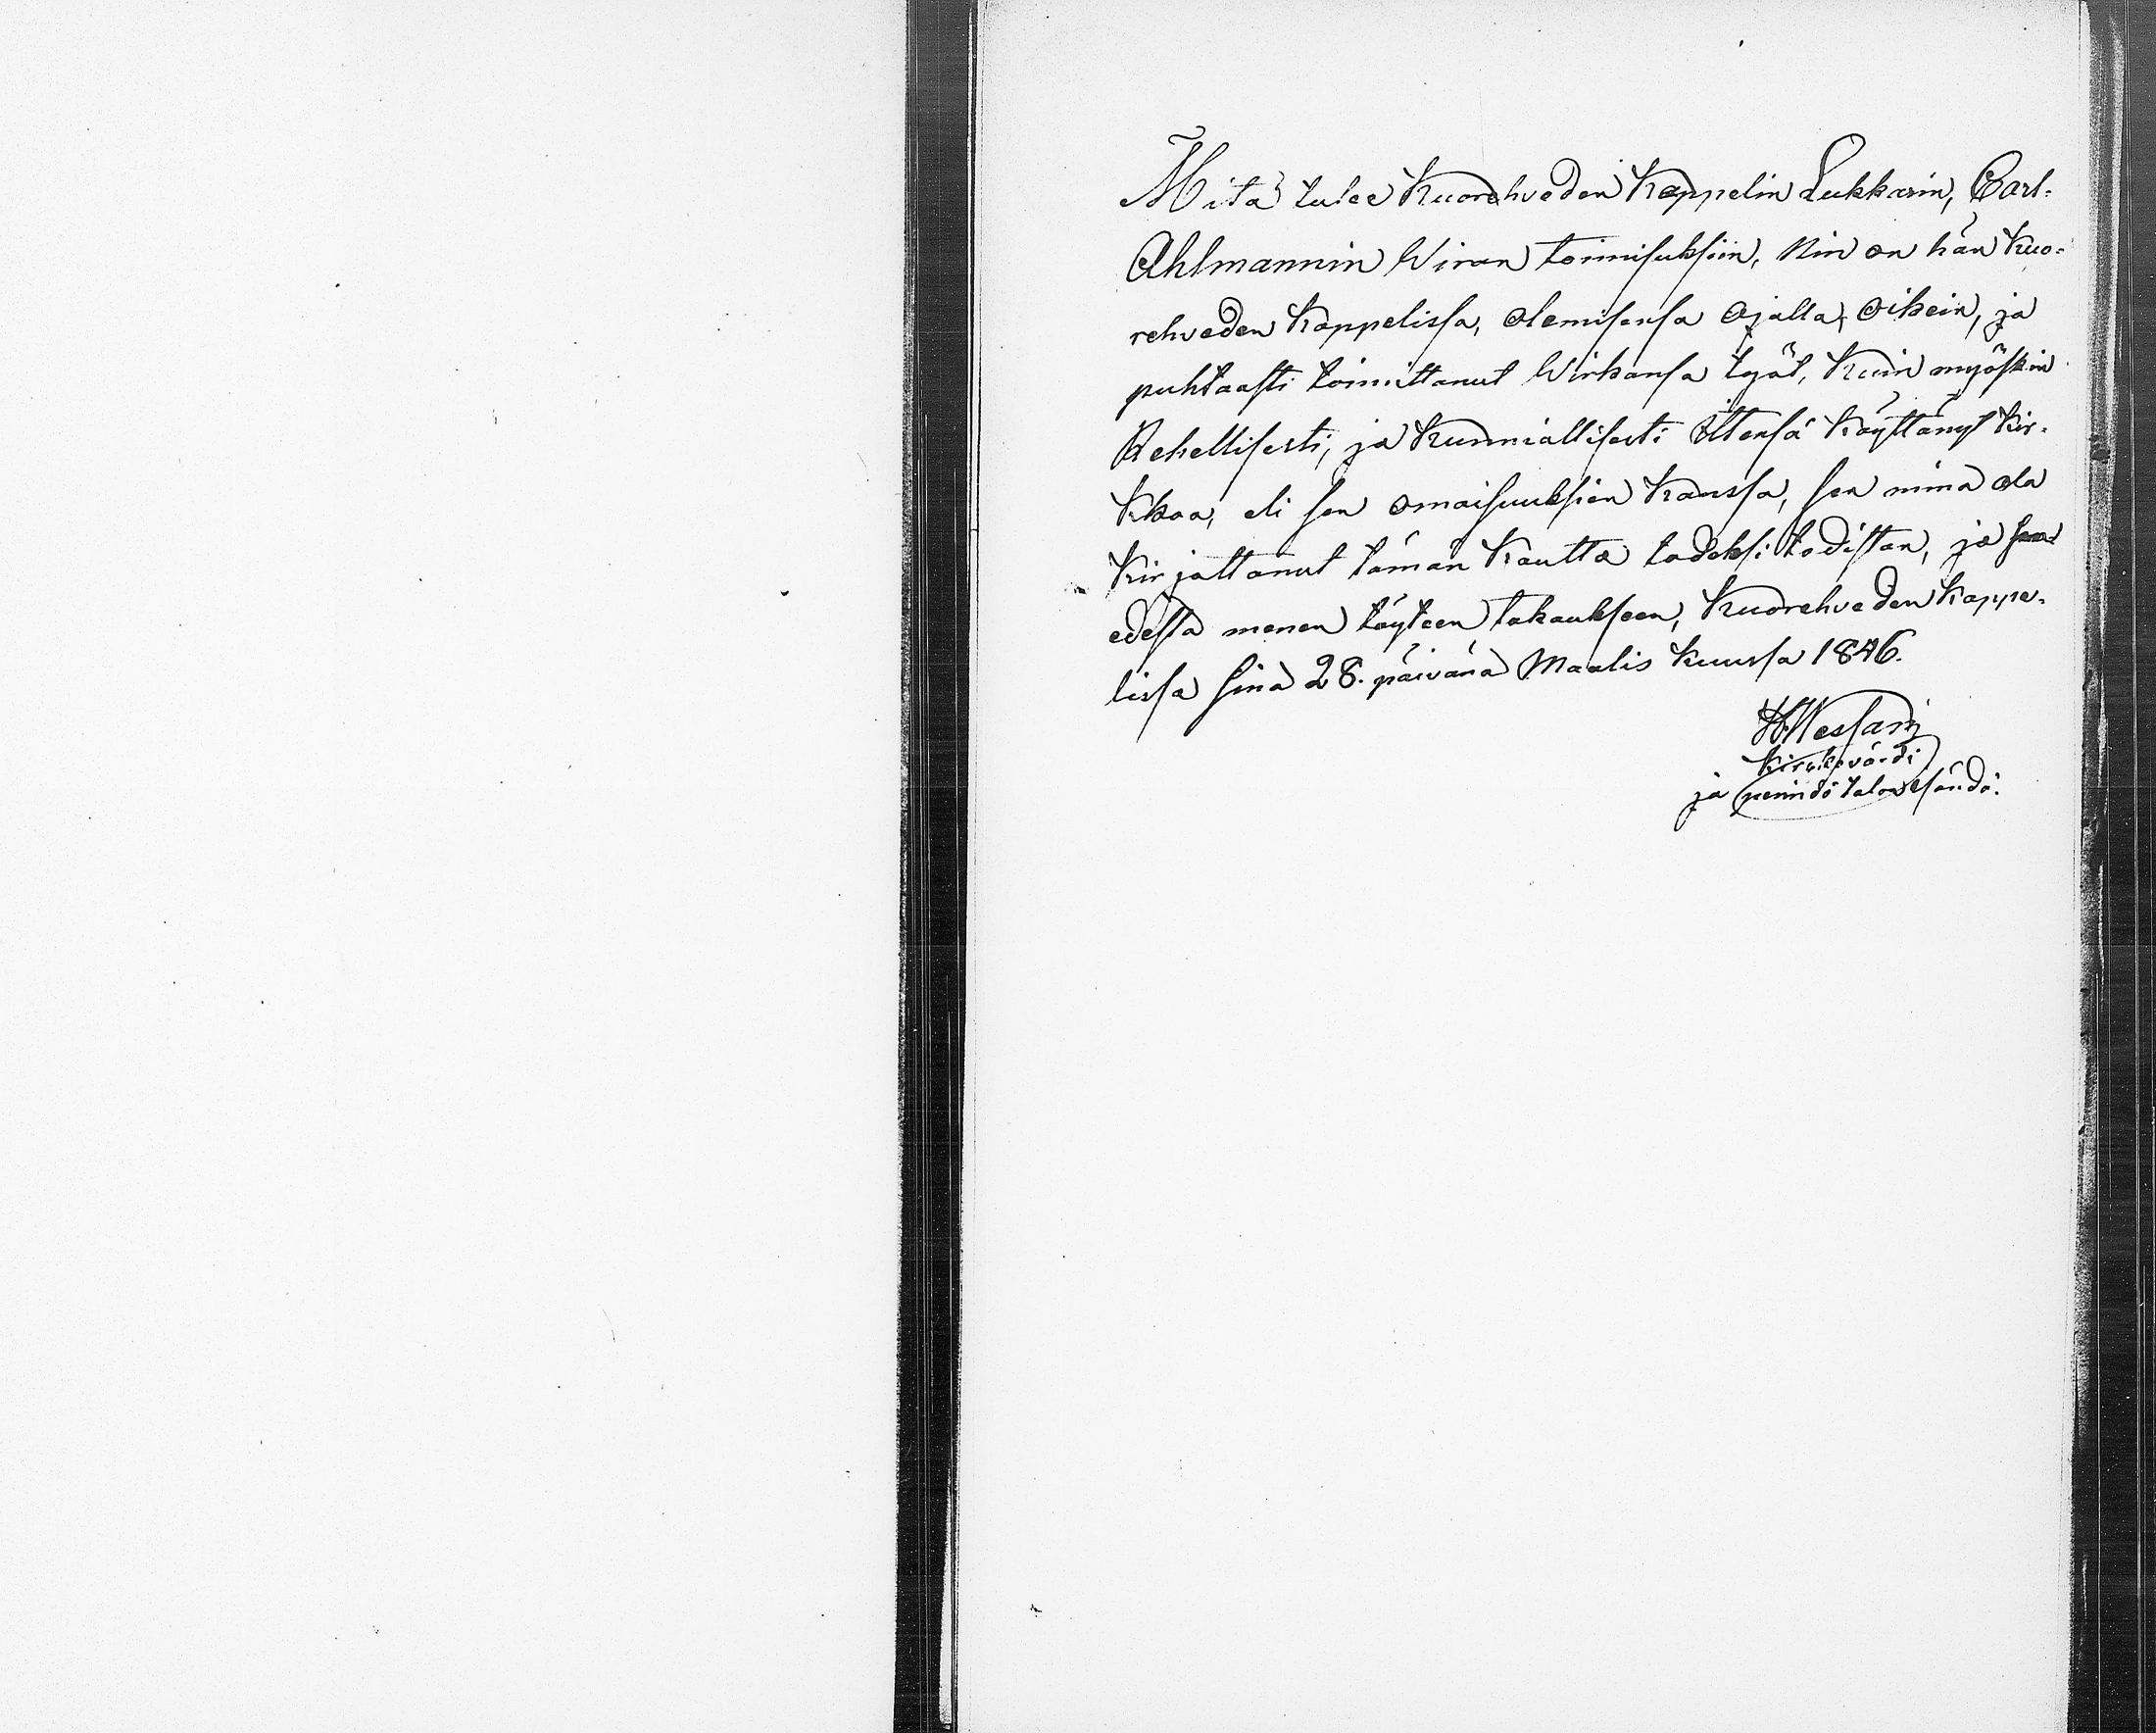 Mitä tulee Kuorehveden Kappelin Lukkarin, Carl-
Ahlmannin Wiran toimisuksiin, Nin on hän Kuo-
rehveden Kappelissa, olemisensa ajalla, oikein, ja
puhtaasti toimittanut Wirkansa työt, Kuin myöskin
Rehellisesti, ja Kunniallisesti ittensä Käyttänyt Kir-
kkoa, eli sen omaisuuksien Kanssa, sen minä ala
Kirjattanut tämän Kautta todeksi todistan, ja sen
edestä menen täyteen takaukseen, Kuorehveden Kappe-
lissa sinä 28. päivänä Maalis Kuussa 1846.
Kirckovärdi
ja perindö talon Isändä.